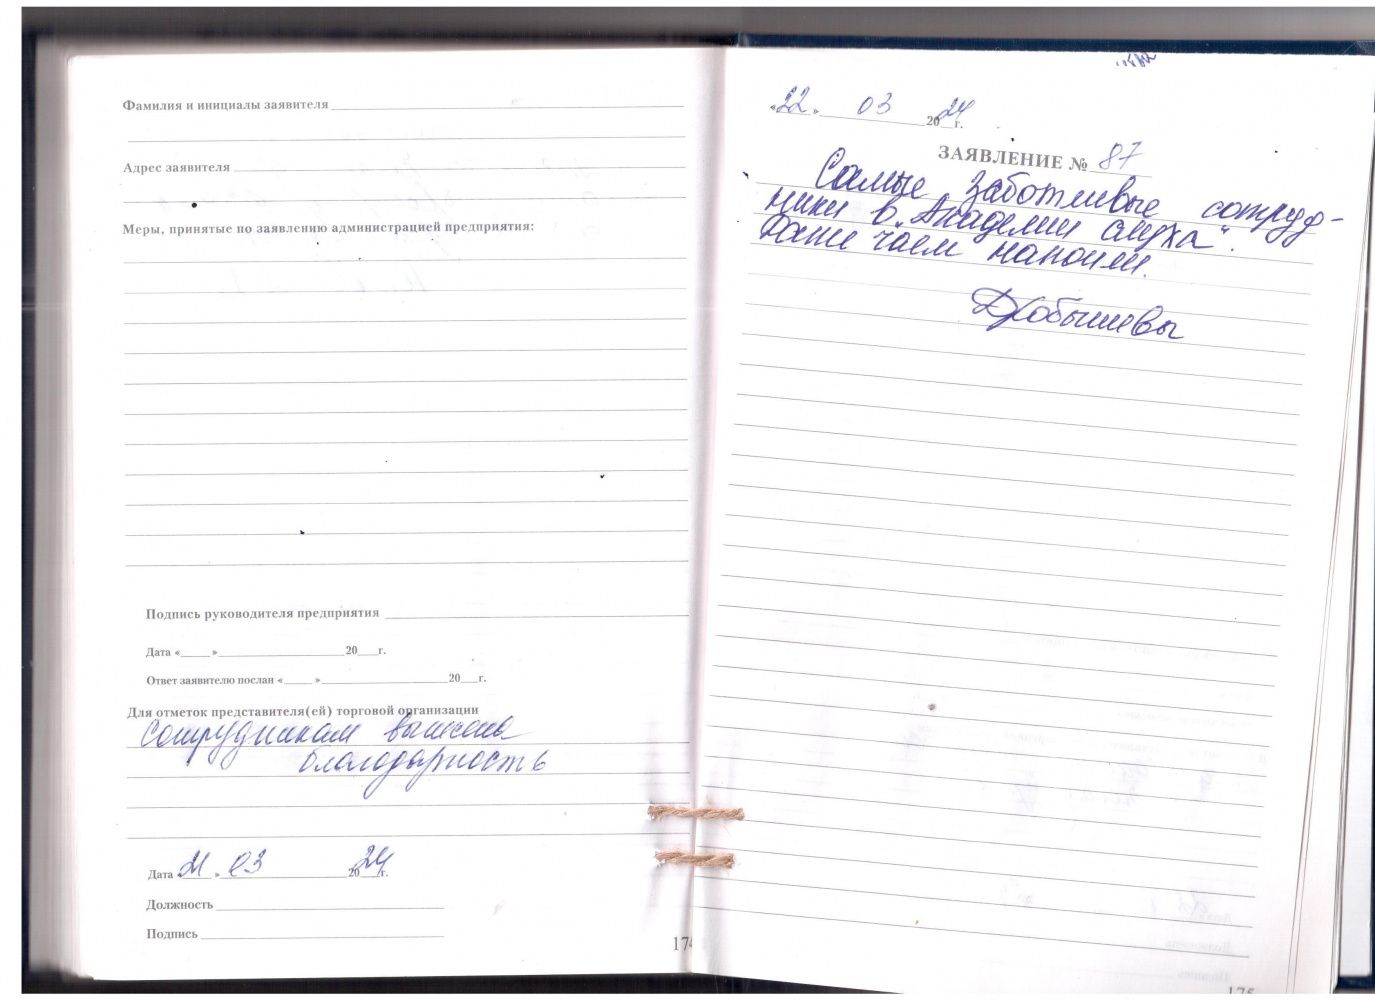 Фамилия и инициалы заявителя
Адрес заявителя
Меры, принятые по заявлению администрацией предприятия:
Подпись руководителя предприятия
Дата « » 20 г.
Ответ заявителю послан « » 20 г.
Для отметок представителя(ей) торговой организации
Сотрудникам вынесена
благодарность
Дата «21» 03 2024 г.
Должность
Подпись
174
«22» 03 2024 г.
ЗАЯВЛЕНИЕ № 87
Самые заботливые сотруд-
ники в „Академии слуха“.
Даже чаем напоили.
Дробышевы
175